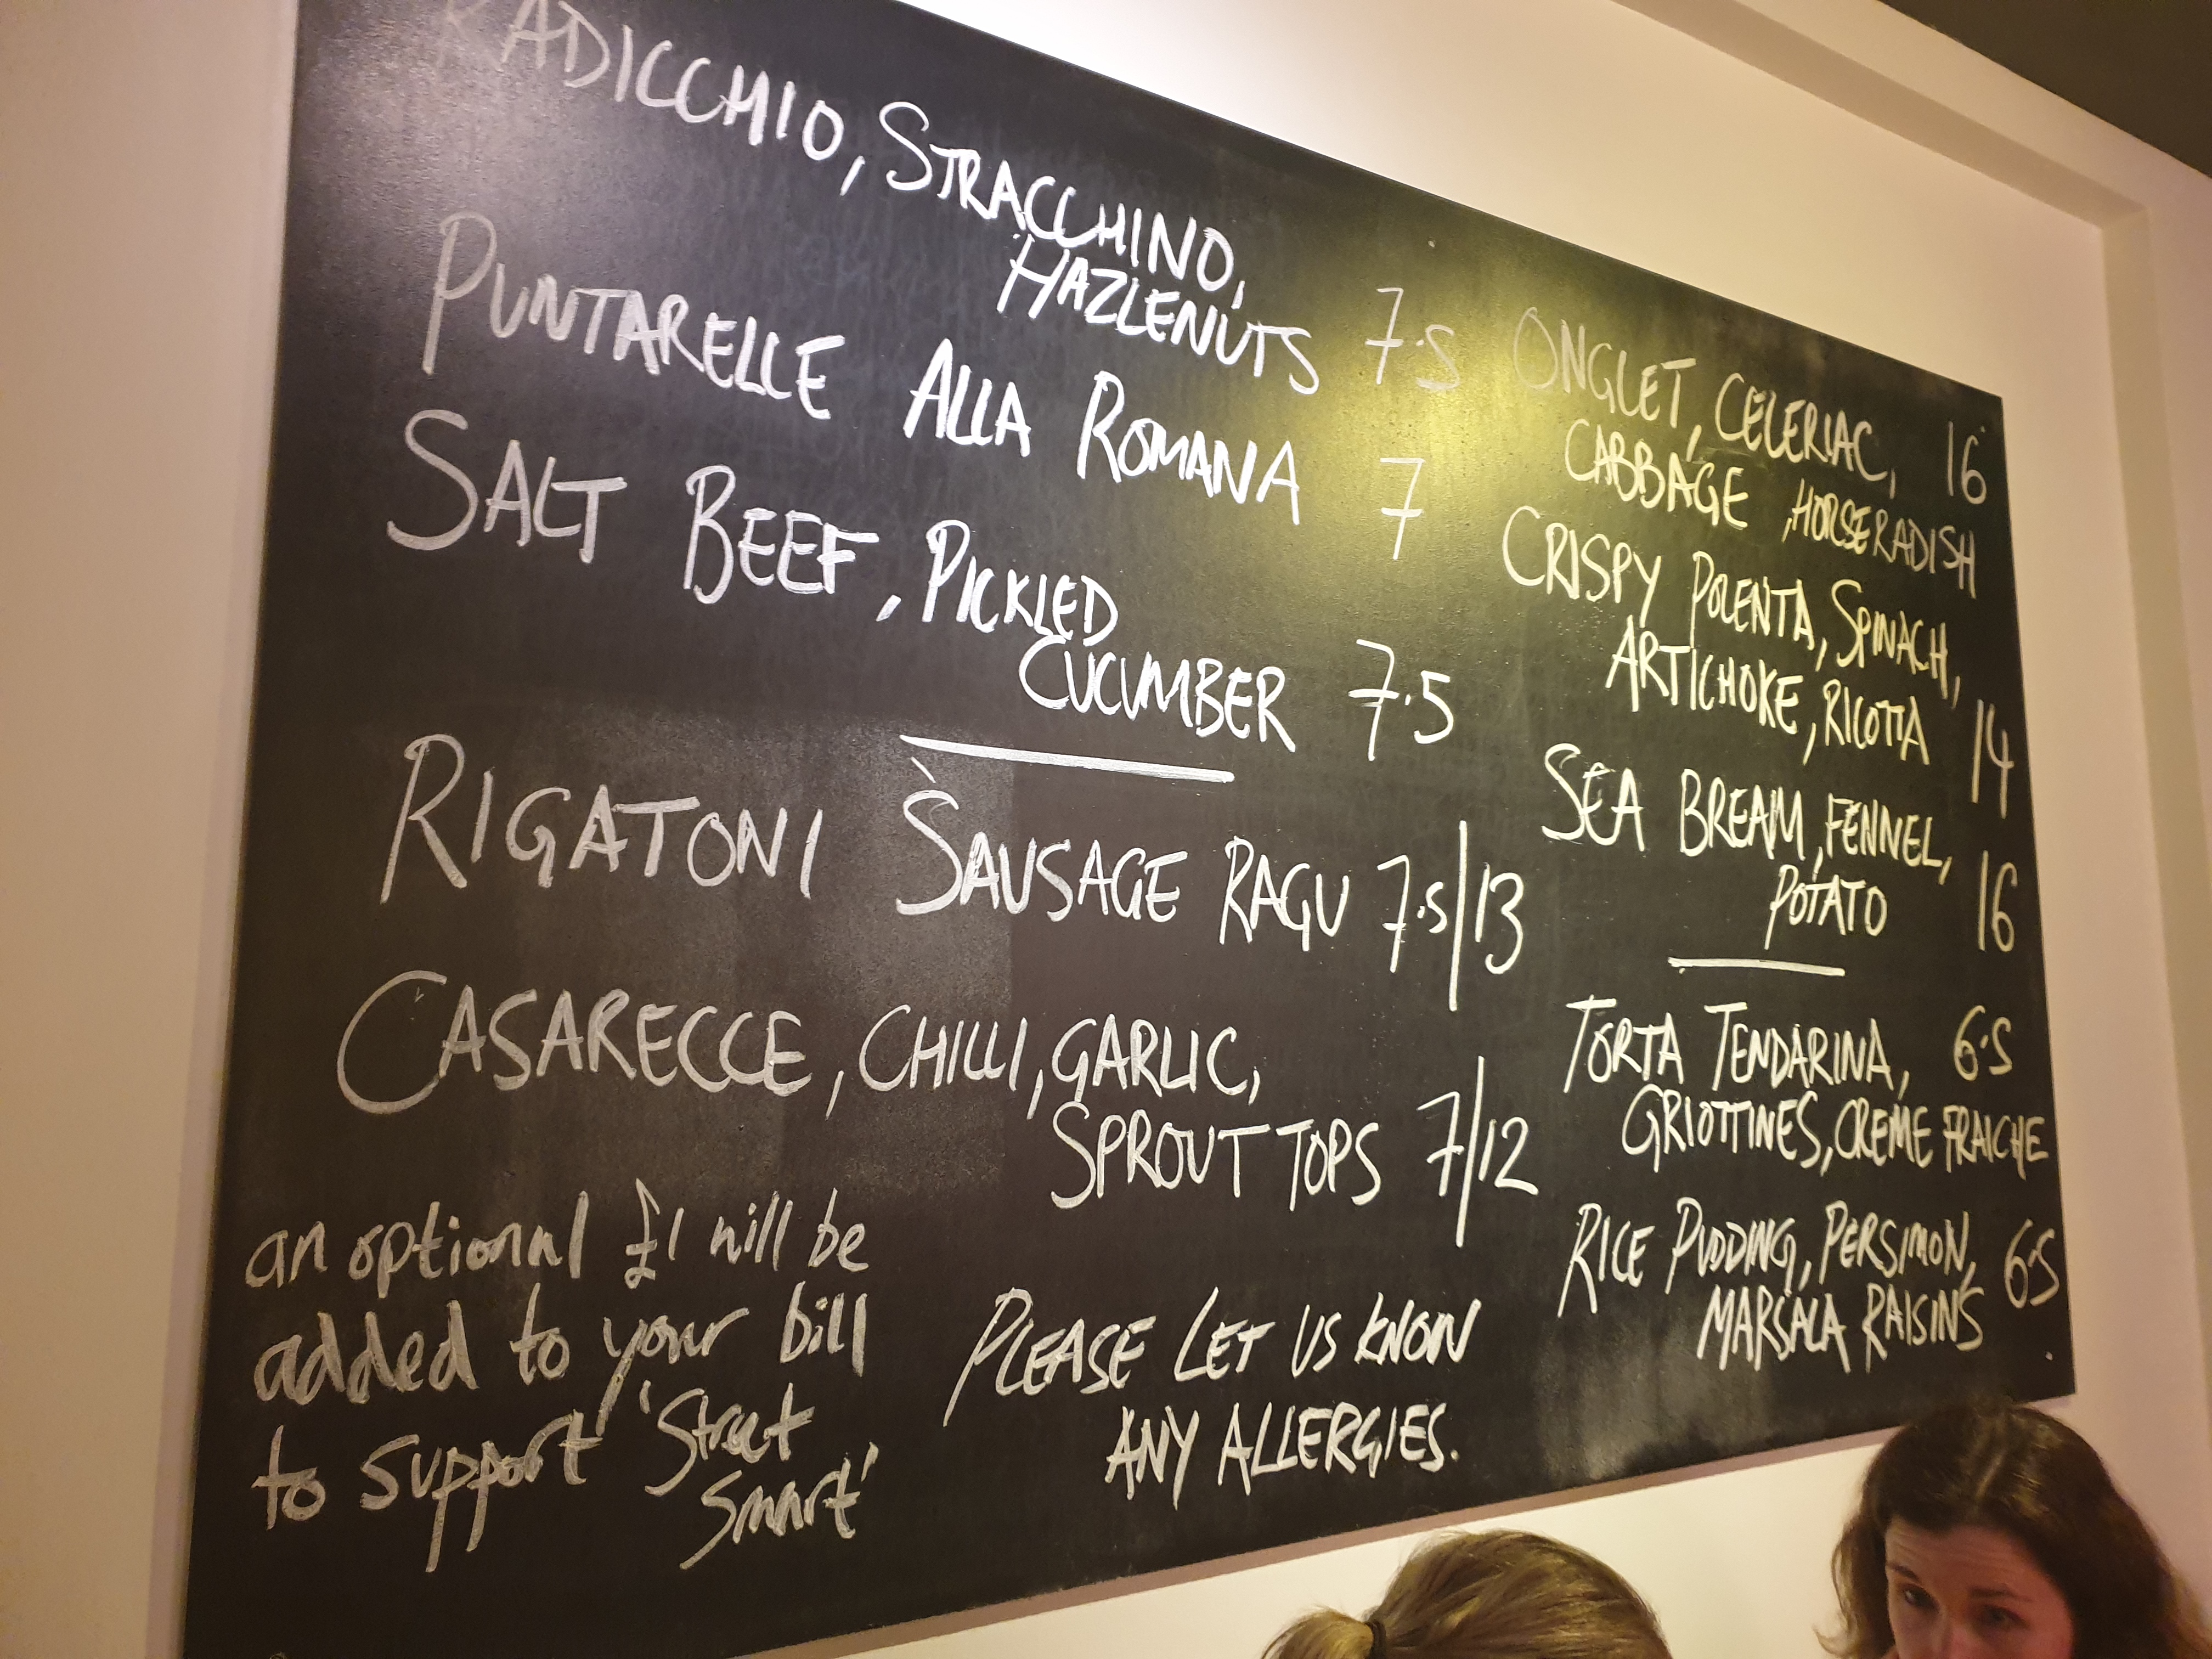 RADICCHIO, STRACCHINO,
HAZLENUTS 7.5
PUNTARELLE ALLA ROMANA 7
SALT BEEF, PICKLED
CUCUMBER 7.5
RIGATONI SAUSAGE RAGU 7.5/13
CASARECCE, CHILLI, GARLIC,
SPROUT TOPS 7/12
an optional £1 will be
added to your bill
to support 'Street
Smart'
PLEASE LET US KNOW
ANY ALLERGIES.
ONGLET, CELERIAC, 16
CABBAGE, HORSERADISH
CRISPY POLENTA, SPINACH,
ARTICHOKE, RICOTTA 14
SEA BREAM, FENNEL,
POTATO 16
TORTA TENDARINA, 6.5
GRIOTTINES, CREME FRAICHE
RICE PUDDING, PERSIMON, 6.5
MARSALA RAISINS